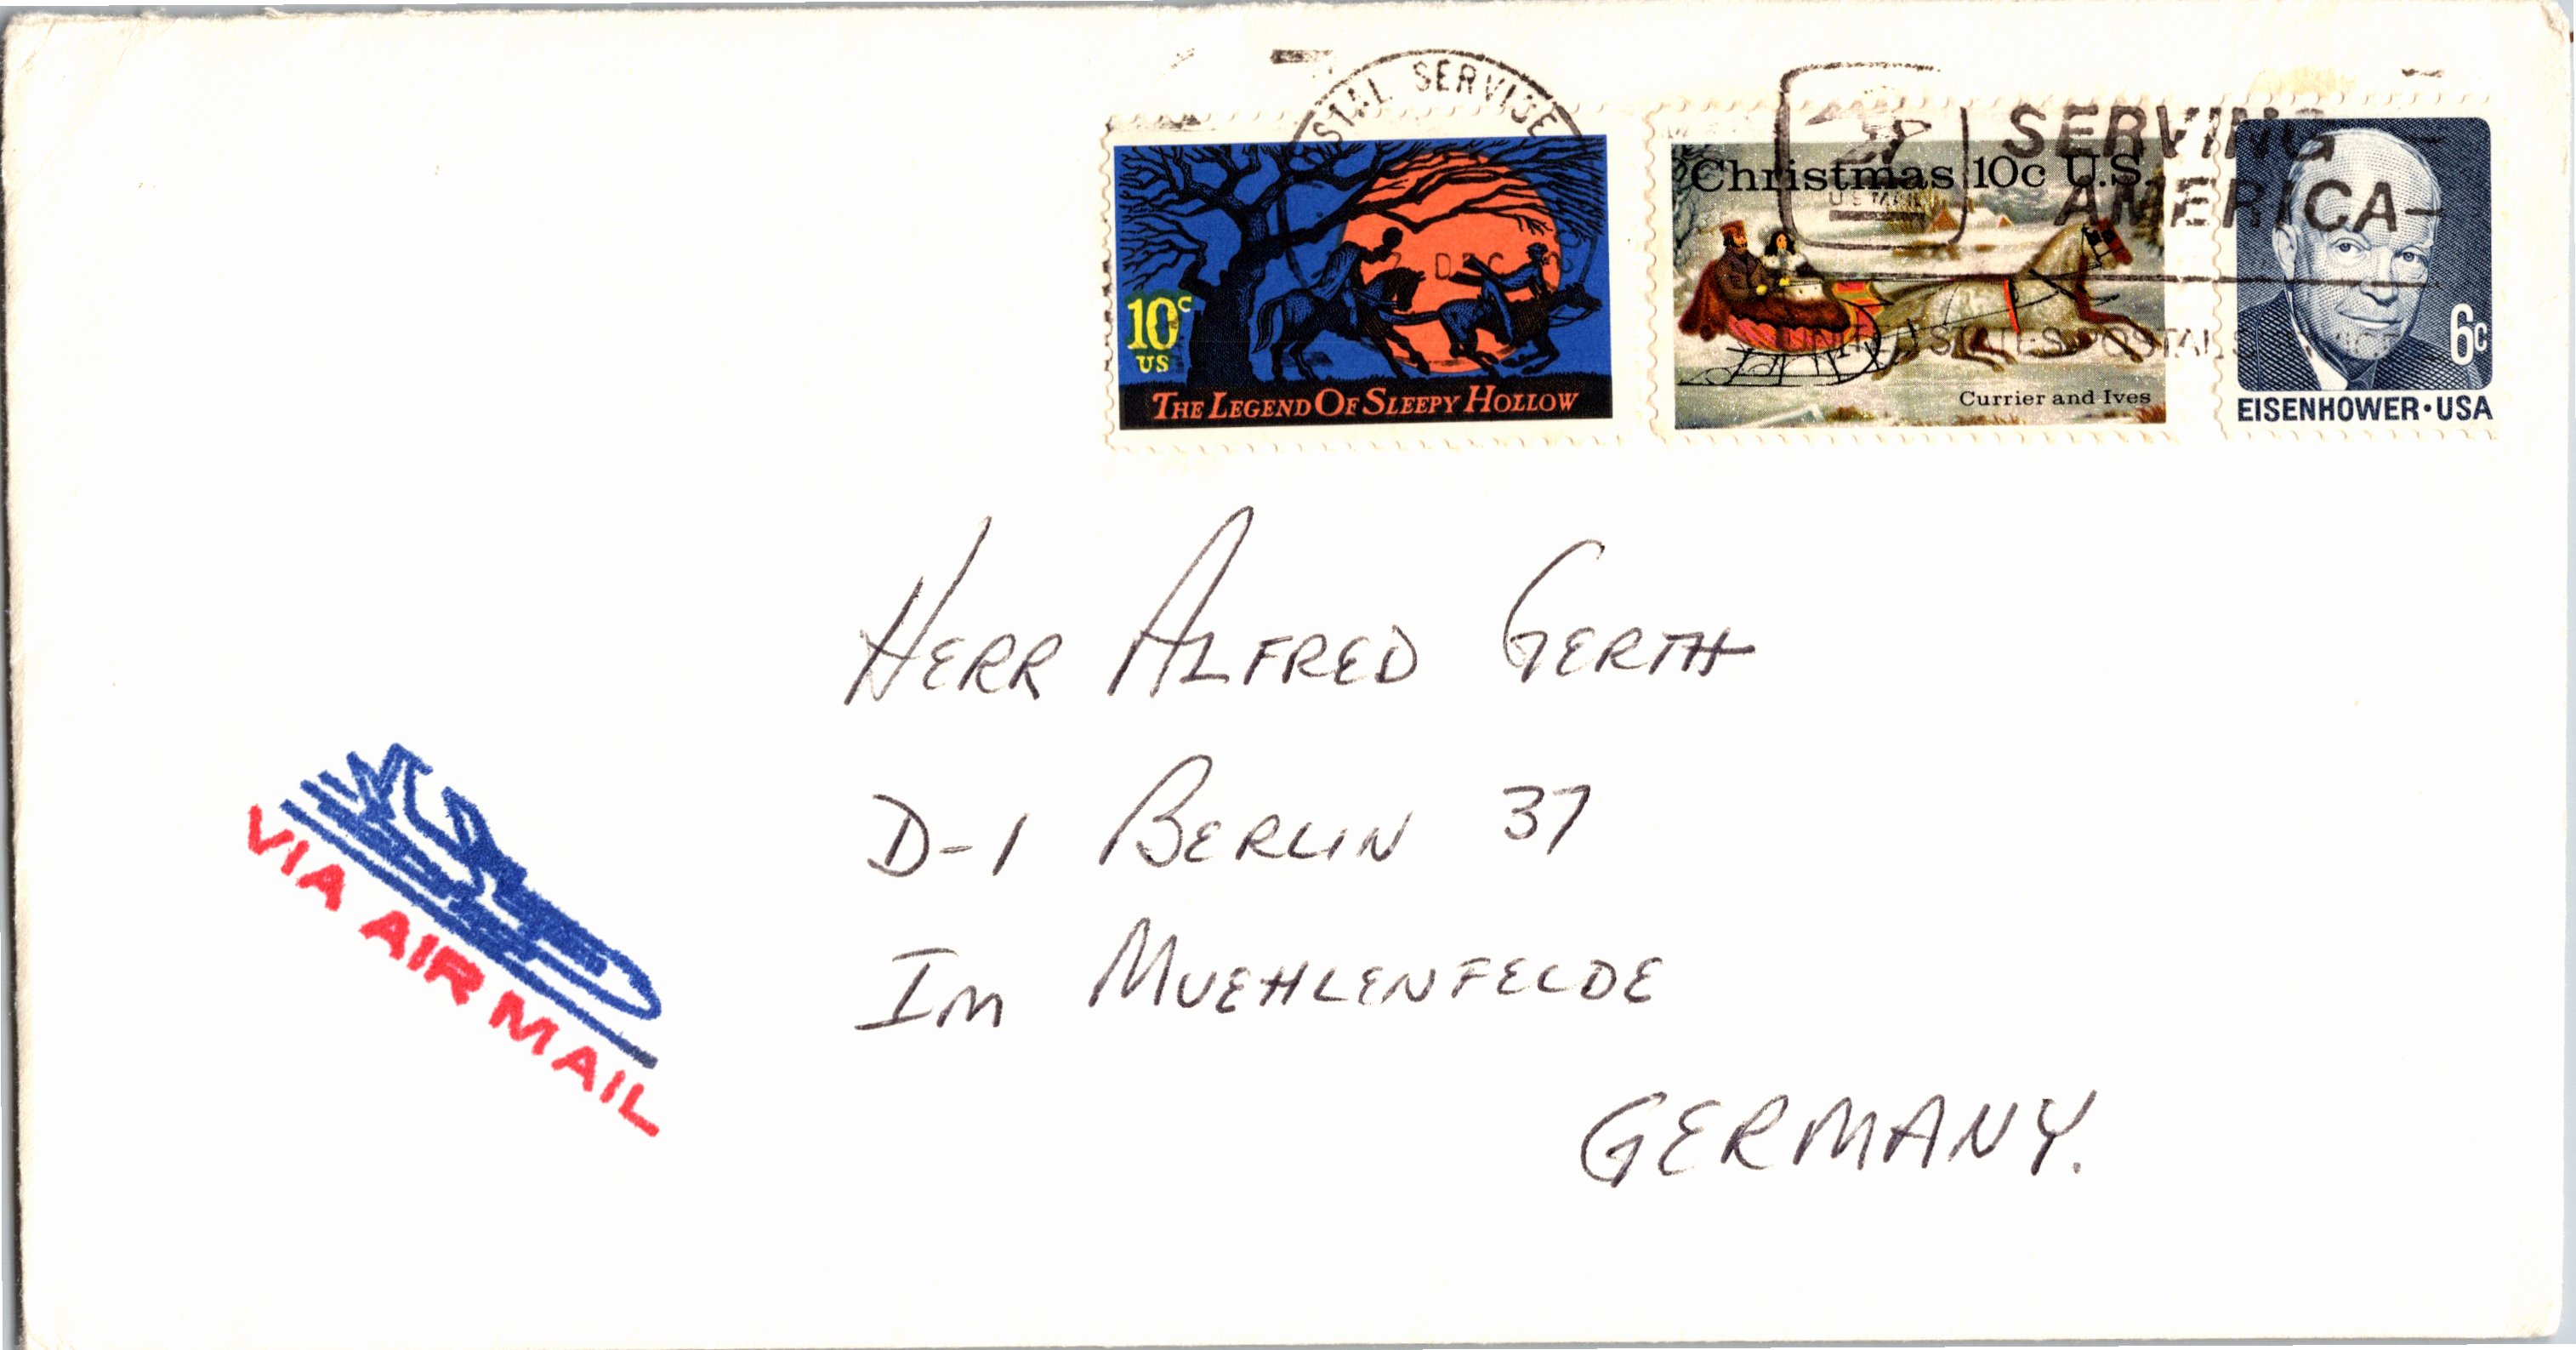 STAL SERVICE
DEC
SERVING
AMERICA
U.S. MAIL
UNITED STATES POSTAL S
10c
US
THE LEGEND OF SLEEPY HOLLOW
Christmas 10c U.S.
Currier and Ives
6c
EISENHOWER·USA
HERR ALFRED GERTH
D-1 BERLIN 37
IM MUEHLENFELDE
GERMANY.
VIA AIR MAIL